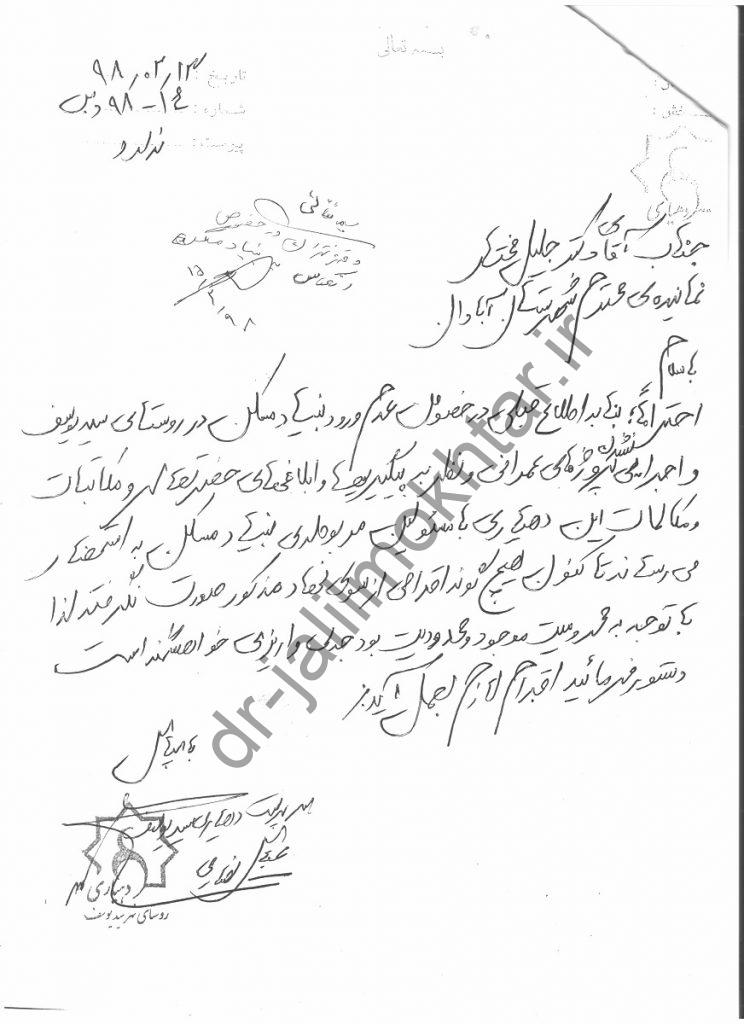 بسمه تعالی
تاریخ : ۹۸/۰۳/۱۳
شماره : ۱۶-۹۸
پیوست : ندارد
جناب آقای دکتر جلیل مختار
نماینده‌ی محترم شهرستان آبادان
باسلام
احتراماً؛ بنا به اطلاع جنابعالی در خصوص عدم ورود بنیاد مسکن در روستای سید یوسف
و اجرایی نشدن پروژه‌های عمرانی و نظر به پیگیری‌ها و ابلاغی‌های حضرتعالی و مکاتبات
و مکالمات این دهیاری با مسئولین مربوطه‌ی بنیاد مسکن به استحضار
می رساند تا کنون هیچ گونه اقدامی از سوی نهاد مذکور صورت نگرفته لذا
با توجه به محرومیت موجود و محدودیت بودجه‌ی واریزی خواهشمند است
دستور فرمائید اقدام لازم بعمل آید.
باسپاس
مدیریت دهیاری سید یوسف
دهیاری
روستای نهر سید یوسف
سمه تعالی
دفتر تهران در خصوص
بنیاد مسکن
۹۸/۳/۱۵
dr-jalilmokhtar.ir